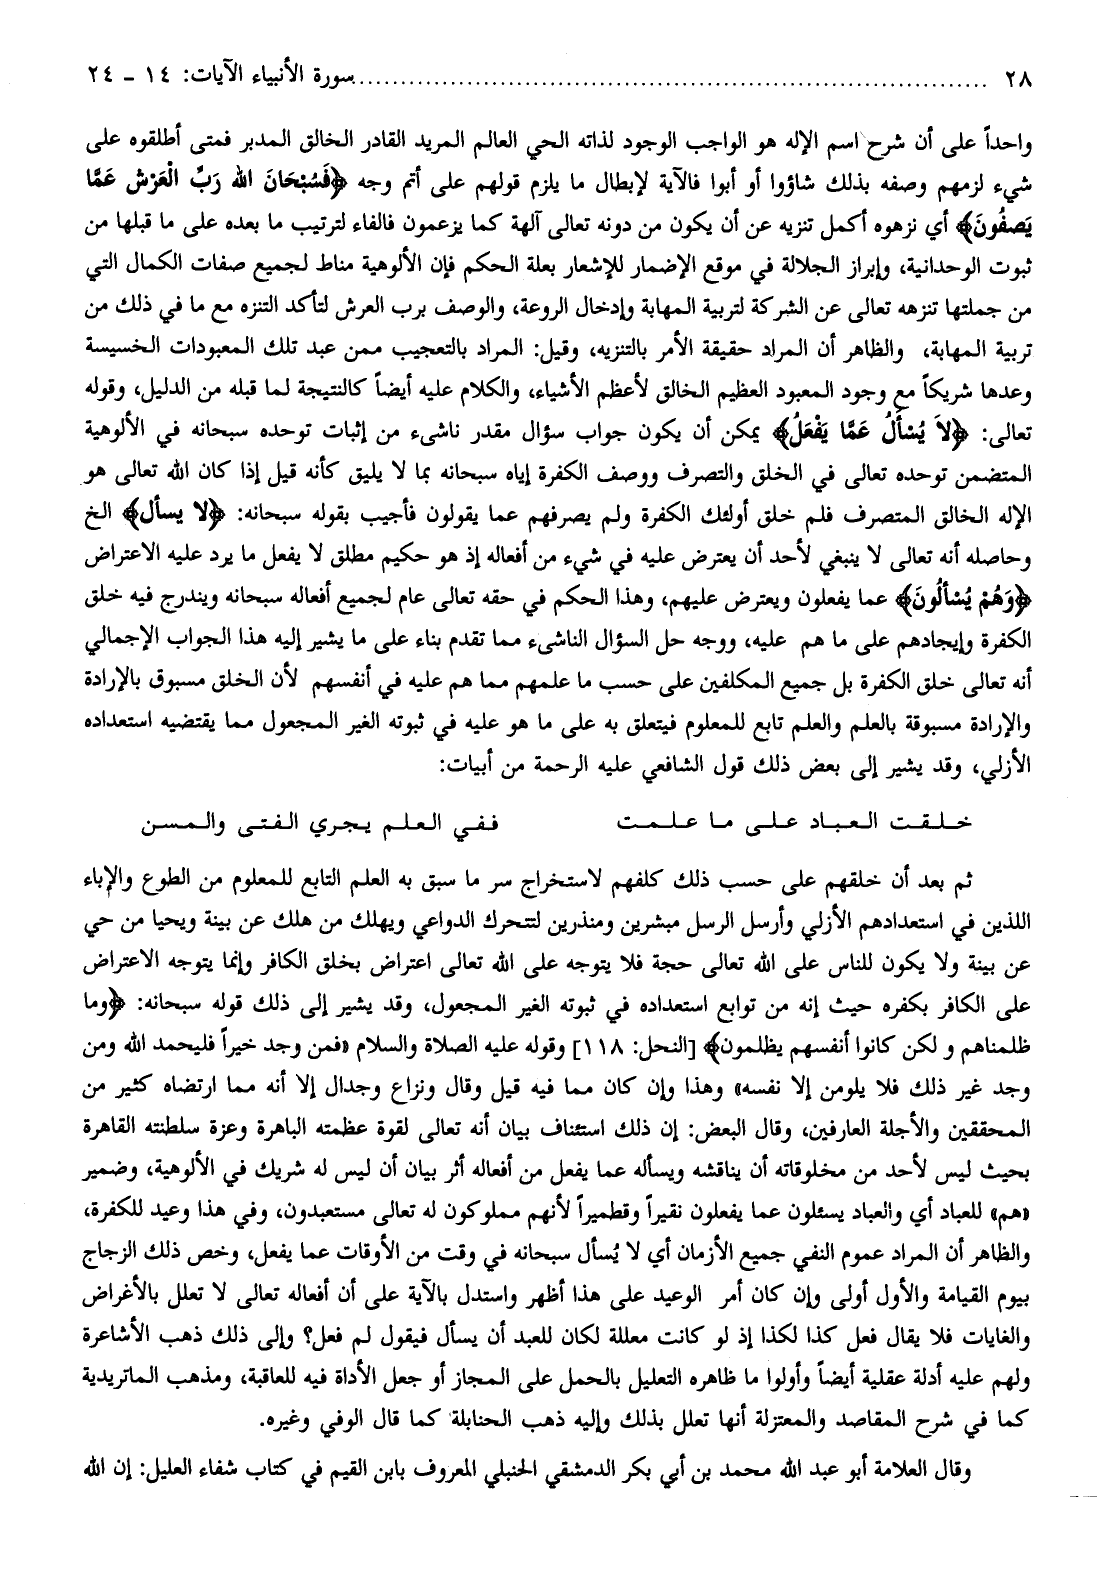 ٢٨ ................................................................ سورة الأنبياء الآيات: ١٤ - ٢٤
واحداً على أن شرح اسم الإله هو الواجب الوجود لذاته الحي العالم المريد القادر الخالق المدبر فمتى أطلقوه على
شيء لزمهم وصفه بذلك شاؤوا أو أبوا فالآية لإبطال ما يلزم قولهم على أتم وجه ﴿فَسُبْحَانَ الله رَبِّ الْعَرْشِ عَمَّا
يَصِفُونَ﴾ أي نزهوه أكمل تنزيه عن أن يكون من دونه تعالى آلهة كما يزعمون فالفاء لترتيب ما بعده على ما قبلها من
ثبوت الوحدانية، وإبراز الجلالة في موقع الإضمار للإشعار بعلة الحكم فإن الألوهية مناط لجميع صفات الكمال التي
من جملتها تنزهه تعالى عن الشركة لتربية المهابة وإدخال الروعة، والوصف برب العرش لتأكد التنزه مع ما في ذلك من
تربية المهابة، والظاهر أن المراد حقيقة الأمر بالتنزيه، وقيل: المراد بالتعجيب ممن عبد تلك المعبودات الخسيسة
وعدها شريكاً مع وجود المعبود العظيم الخالق لأعظم الأشياء، والكلام عليه أيضاً كالنتيجة لما قبله من الدليل، وقوله
تعالى: ﴿لاَ يُسْأَلُ عَمَّا يَفْعَلُ﴾ يمكن أن يكون جواب سؤال مقدر ناشىء من إثبات توحده سبحانه في الألوهية
المتضمن توحده تعالى في الخلق والتصرف ووصف الكفرة إياه سبحانه بما لا يليق كأنه قيل إذا كان الله تعالى هو
الإله الخالق المتصرف فلم خلق أولئك الكفرة ولم يصرفهم عما يقولون فأجيب بقوله سبحانه: ﴿لا يسأل﴾ الخ
وحاصله أنه تعالى لا ينبغي لأحد أن يعترض عليه في شيء من أفعاله إذ هو حكيم مطلق لا يفعل ما يرد عليه الاعتراض
﴿وَهُمْ يُسْأَلُونَ﴾ عما يفعلون ويعترض عليهم، وهذا الحكم في حقه تعالى عام لجميع أفعاله سبحانه ويندرج فيه خلق
الكفرة وإيجادهم على ما هم عليه، ووجه حل السؤال الناشىء مما تقدم بناء على ما يشير إليه هذا الجواب الإجمالي
أنه تعالى خلق الكفرة بل جميع المكلفين على حسب ما علمهم مما هم عليه في أنفسهم لأن الخلق مسبوق بالإرادة
والإرادة مسبوقة بالعلم والعلم تابع للمعلوم فيتعلق به على ما هو عليه في ثبوته الغير المجعول مما يقتضيه استعداده
الأزلي، وقد يشير إلى بعض ذلك قول الشافعي عليه الرحمة من أبيات:
خلقت العباد على ما علمت ففي العلم يجري الفتى والمسن
ثم بعد أن خلقهم على حسب ذلك كلفهم لاستخراج سر ما سبق به العلم التابع للمعلوم من الطوع والإباء
اللذين في استعدادهم الأزلي وأرسل الرسل مبشرين ومنذرين لتتحرك الدواعي ويهلك من هلك عن بينة ويحيا من حي
عن بينة ولا يكون للناس على الله تعالى حجة فلا يتوجه على الله تعالى اعتراض بخلق الكافر وإنما يتوجه الاعتراض
على الكافر بكفره حيث إنه من توابع استعداده في ثبوته الغير المجعول، وقد يشير إلى ذلك قوله سبحانه: ﴿وما
ظلمناهم و لكن كانوا أنفسهم يظلمون﴾ [النحل: ١١٨] وقوله عليه الصلاة والسلام «فمن وجد خيراً فليحمد الله ومن
وجد غير ذلك فلا يلومن إلا نفسه» وهذا وإن كان مما فيه قيل وقال ونزاع وجدال إلا أنه مما ارتضاه كثير من
المحققين والأجلة العارفين، وقال البعض: إن ذلك استئناف بيان أنه تعالى لقوة عظمته الباهرة وعزة سلطنته القاهرة
بحيث ليس لأحد من مخلوقاته أن يناقشه ويسأله عما يفعل من أفعاله أثر بيان أن ليس له شريك في الألوهية، وضمير
«هم» للعباد أي والعباد يسئلون عما يفعلون نقيراً وقطميراً لأنهم مملوكون له تعالى مستعبدون، وفي هذا وعيد للكفرة،
والظاهر أن المراد عموم النفي جميع الأزمان أي لا يُسأل سبحانه في وقت من الأوقات عما يفعل، وخص ذلك الزجاج
بيوم القيامة والأول أولى وإن كان أمر الوعيد على هذا أظهر واستدل بالآية على أن أفعاله تعالى لا تعلل بالأغراض
والغايات فلا يقال فعل كذا لكذا إذ لو كانت معللة لكان للعبد أن يسأل فيقول لم فعل؟ وإلى ذلك ذهب الأشاعرة
ولهم عليه أدلة عقلية أيضاً وأولوا ما ظاهره التعليل بالحمل على المجاز أو جعل الأداة فيه للعاقبة، ومذهب الماتريدية
كما في شرح المقاصد والمعتزلة أنها تعلل بذلك وإليه ذهب الحنابلة كما قال الوفي وغيره.
وقال العلامة أبو عبد الله محمد بن أبي بكر الدمشقي الحنبلي المعروف بابن القيم في كتاب شفاء العليل: إن الله